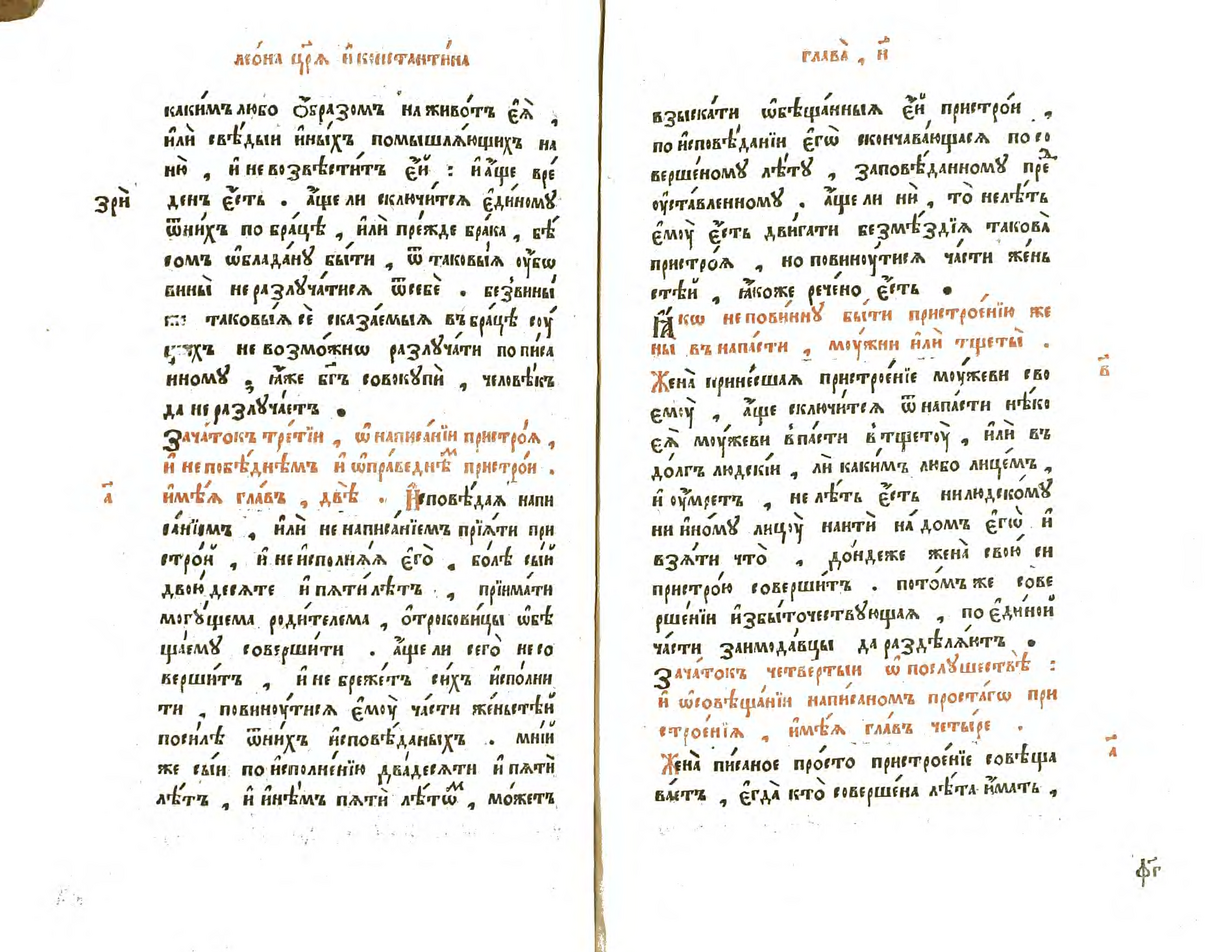 леѡ́на цр҃ѧ и҆ константи́на
каки́мъ любо ѻ҆́бразомъ на живо́тъ є҆ѧ̀ ,
и҆лѝ свѣ́дыи и҆ны́хъ помышлѧ́ющихъ на
ню̀ , и҆ не возвѣсти́тъ є҆́й : и҆ а҆́ще вре
зрѝ
де́нъ є҆́сть . а҆́ще ли сключи́тсѧ є҆ди́ному
ѿни́хъ по бра́цѣ , и҆лѝ пре́жде бра́ка , бѣ
сомъ ѡ҆блада́ну бы́ти , ѿ таковы́ѧ ᲂу҆́бѡ
вины̀ не разлуча́тисѧ ѿсебѐ . без̾вины́
таковы́ѧ сѐ сказа́емыѧ въ бра́цѣ соу́
не возмо́жнѡ разлуча́ти по писа
нному , ꙗ҆́же бг҃ъ совокупѝ , человѣ́къ
да не разлуча́етъ .
Зача́токъ тре́тїи , ѡ҆ написа́нїи пристро́ѧ ,
и҆ не побѣ́днѣмъ и҆ ѡ҆пра́веднѣⷨ пристро́и .
а҃
и҆мѣ́ѧ гла́въ , двѣ̀ . И҆сповѣ́даѧ напи
са́нїемъ , и҆лѝ не написа́нїемъ прїѧ́ти при
стро́й , и҆ не и҆сполнѧ́ѧ є҆го̀ , бо́лѣ сы́й
двою́ десѧте и҆ пѧти́ лѣ́тъ , прїима́ти
могу́щема роди́телема , ѻ҆трокови́цы ѡ҆бѣ
ща́ему соверши́ти . а҆́ще ли сего̀ не со
верши́тъ , и҆ не бреже́тъ си́хъ и҆спо́лни
ти , повиноу́тисѧ є҆моу̀ ча́сти же́ньстѣй
по си́лѣ ѿни́хъ и҆сповѣ́даныхъ . мні́й
же сы́и по и҆сполне́нїю два́десѧти и҆ пѧтѝ
лѣ́тъ , и҆ и҆нѣ́мъ пѧтѝ лѣ́тѡⷨ , мо́жетъ
глава̀ , и҃
взыска́ти ѡ҆бѣща́нныѧ є҆́й пристро́и ,
по и҆сповѣ́данїи є҆гѡ̀ скончава́ющасѧ по со
верше́ному лѣ́ту , заповѣ́данному преⷣ
ᲂу҆ста́вленному . а҆́ще ли нѝ , то̀ не лѣ́ть
є҆моу̀ є҆́сть дви́гати безмѣ́здїѧ такова̀
пристро́ѧ , но повиноу́тисѧ ча́сти же́нь
стѣ́й , ꙗ҆́коже рече́но є҆́сть .
Ꙗ҆́кѡ не пови́нну бы́ти пристрое́нїю же
ны̀ въ напа́сти , моу́жни и҆лѝ тщеты̀ .
в҃
Жена̀ принесшаѧ пристрое́нїе моу́жеви сво
є҆моу̀ , а҆́ще сключи́тсѧ ѿ напа́сти нѣ́ко
еѧ̀ моу́жеви впа́сти в тщетоу̀ , и҆лѝ въ
до́лгъ людскі́и , лѝ каки́мъ либо лице́мъ ,
и҆ ᲂу҆́мретъ , не лѣ́ть є҆́сть ни людско́му
ни и҆но́му лицоу̀ наити́ на́ домъ є҆гѡ̀ и҆
взѧ́ти что̀ , до́ндеже жена̀ свою́ си
пристро́ю соверши́тъ . пото́мъ же сове
рше́нїи и҆збы́точествующаѧ , по є҆ди́ной
ча́сти заимода́вцы да раздѣлѧ́ютъ .
Зача́токъ четве́ртыи ѡ҆ послу́шествѣ :
и҆ ѡ҆совѣща́нїи напи́саномъ проста́гѡ при
строе́нїѧ , и҆мѣ́ѧ гла́въ четы́ре .
а҃
Жена̀ пи́саное про́сто пристрое́нїе совѣща
ва́етъ , є҆гда̀ кто̀ соверше́на лѣ́та и҆́мать ,
фг҃